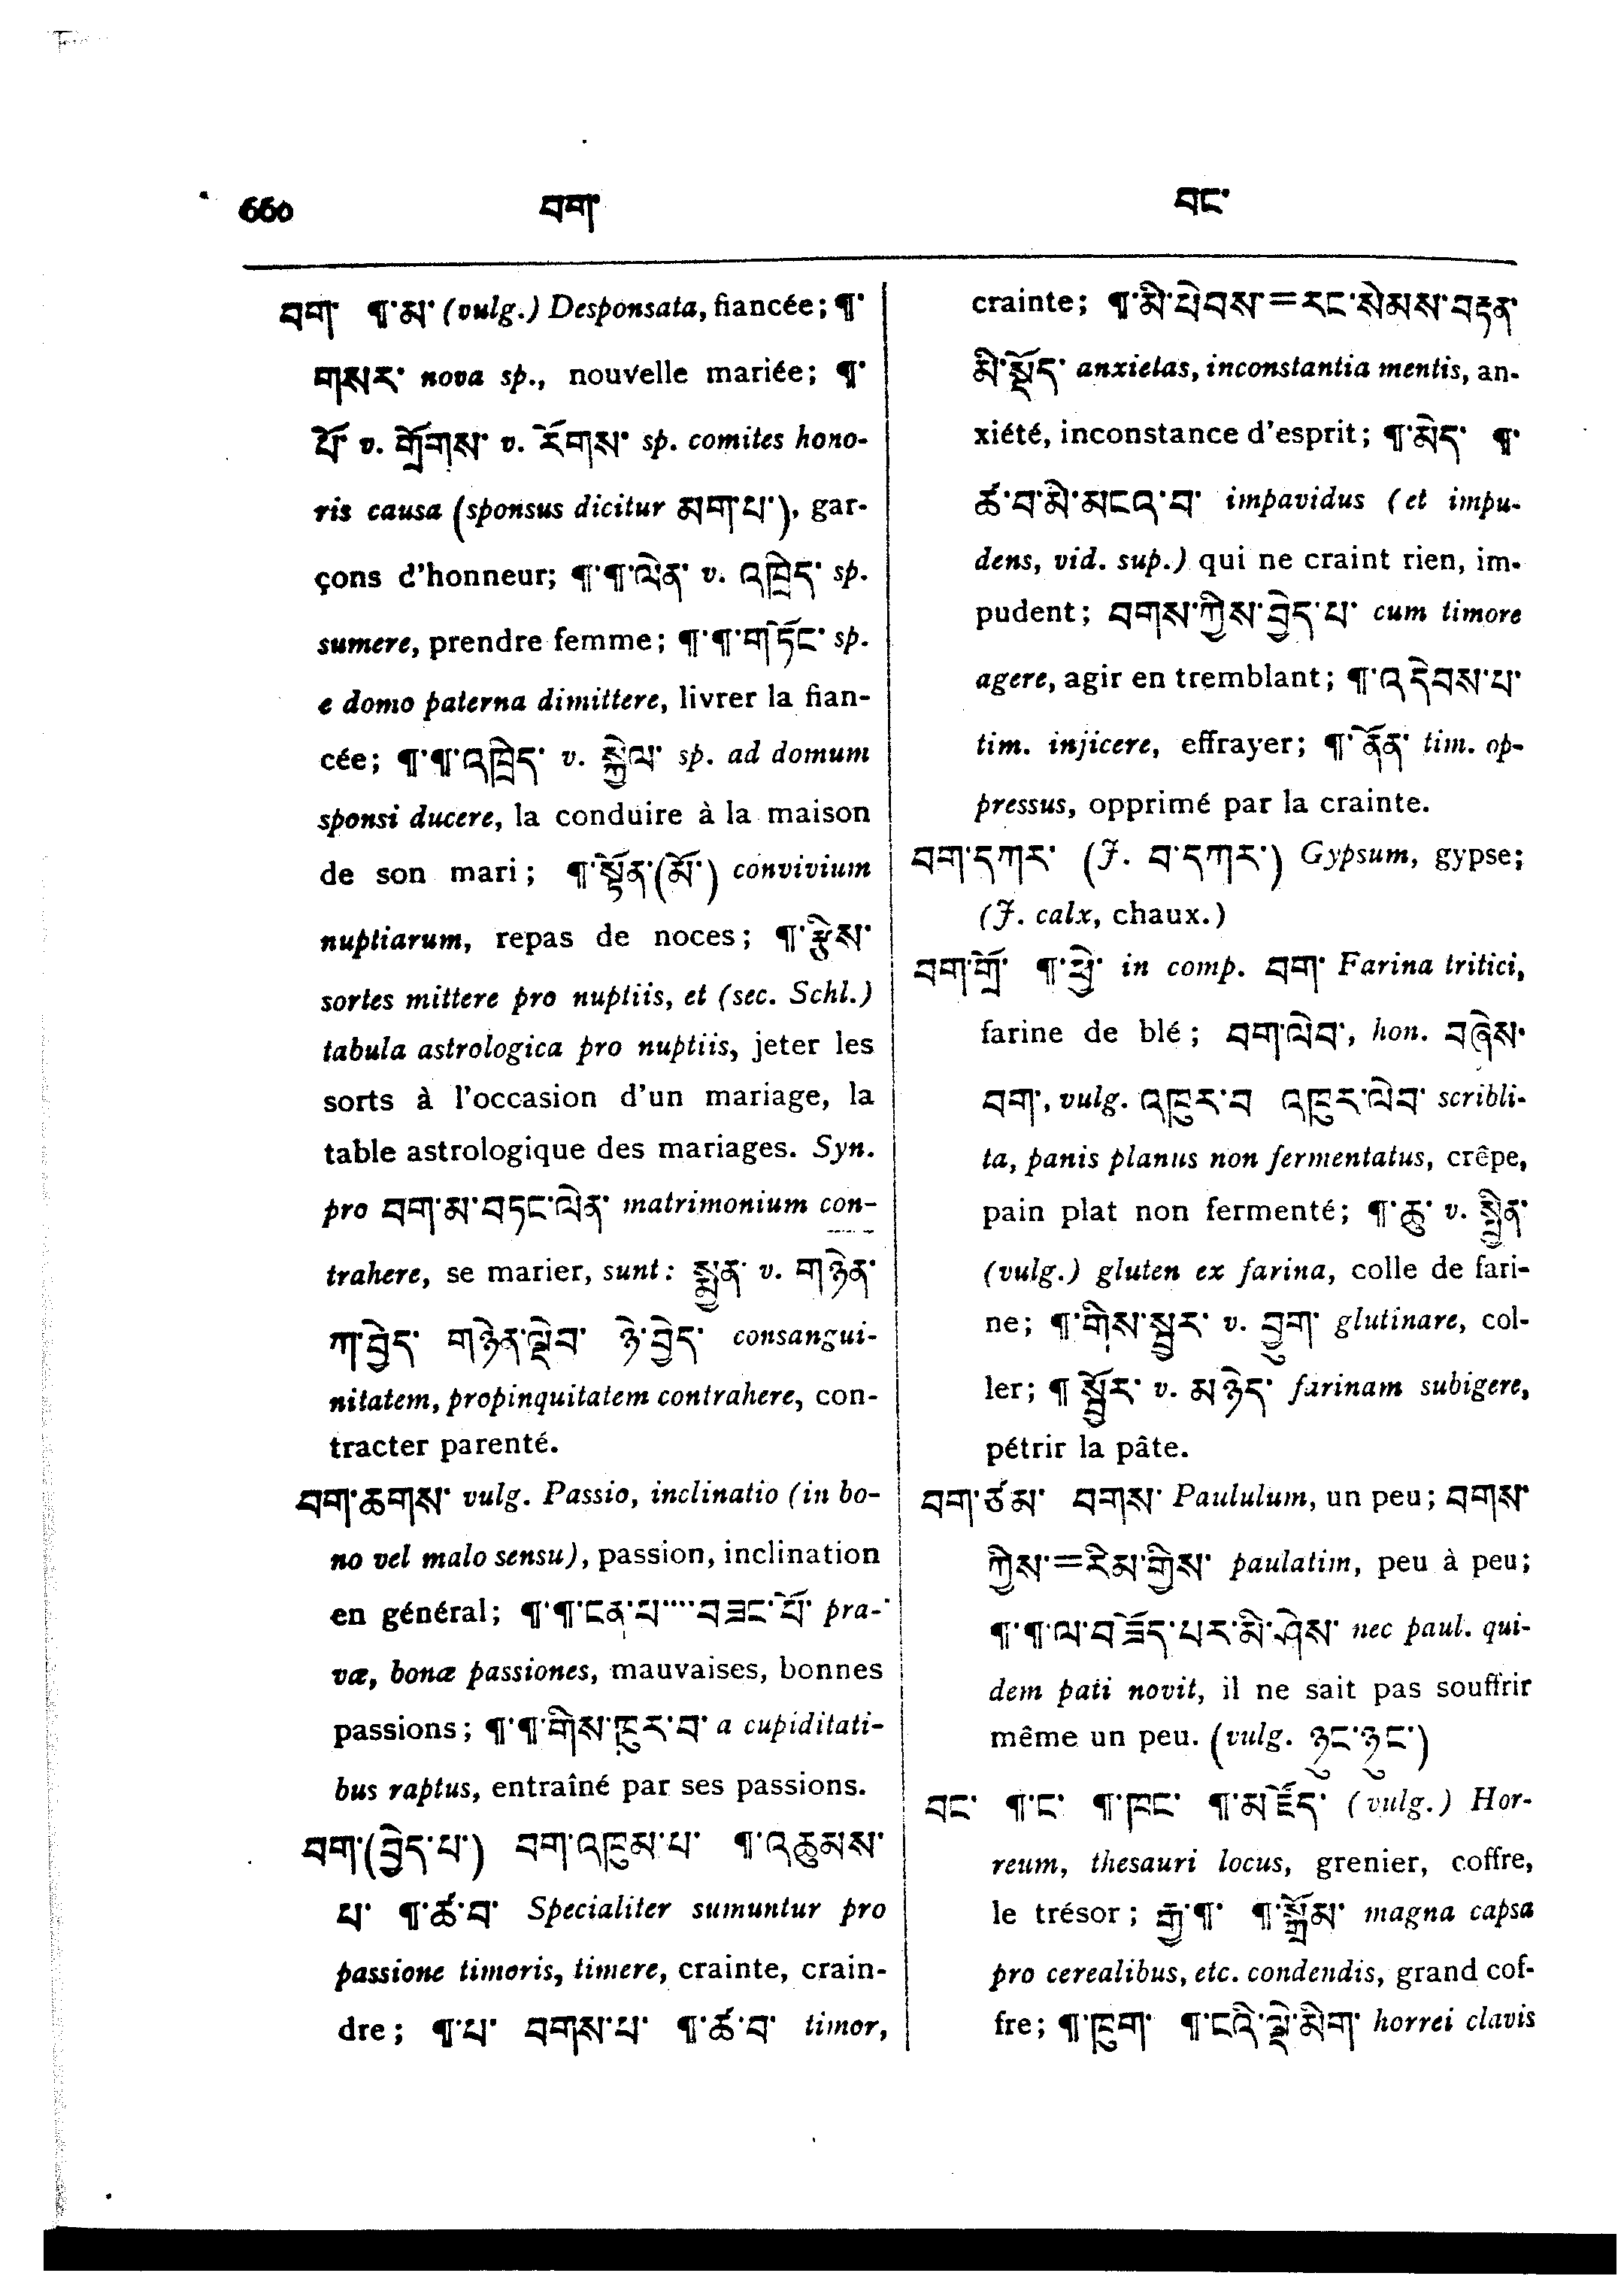 660 བག་ བང་
བག་ ¶་མ་ (vulg.) Desponsata, fiancée; ¶་
གསར་ nova sp., nouvelle mariée; ¶་
པོ་ v. གྲོགས་ v. རོགས་ sp. comites hono-
ris causa (sponsus dicitur མག་པ་), gar-
çons d'honneur; ¶་¶་ལེན་ v. འཁྲིད་ sp.
sumere, prendre femme; ¶་¶་གཏོང་ sp.
e domo paterna dimittere, livrer la fian-
cée; ¶་¶་འཁྲིད་ v. སྐྱེལ་ sp. ad domum
sponsi ducere, la conduire à la maison
de son mari; ¶་སྟོན་(མོ་) convivium
nuptiarum, repas de noces; ¶་རྩིས་
sortes mittere pro nuptiis, et (sec. Schl.)
tabula astrologica pro nuptiis, jeter les
sorts à l'occasion d'un mariage, la
table astrologique des mariages. Syn.
pro བག་མ་བཏང་ལེན་ matrimonium con-
trahere, se marier, sunt: སྨྱན་ v. གཉེན་
ཀ་བྱེད་ གཉེན་ལྡེབ་ ཉེ་བྱེད་ consangui-
nitatem, propinquitatem contrahere, con-
tracter parenté.
བག་ཆགས་ vulg. Passio, inclinatio (in bo-
no vel malo sensu), passion, inclination
en général; ¶་¶་ངན་པ་····བཟང་པོ་ pra-
væ, bonæ passiones, mauvaises, bonnes
passions; ¶་¶་གིས་ཁུར་བ་ a cupiditati-
bus raptus, entraîné par ses passions.
བག་(བྱེད་པ་) བག་འཁུམ་པ་ ¶་འཆུམས་
པ་ ¶་ཚ་བ་ Specialiter sumuntur pro
passione timoris, timere, crainte, crain-
dre; ¶་པ་ བགས་པ་ ¶་ཚ་བ་ timor,
crainte; ¶་མི་ཕེབས་=རང་སེམས་བརྟན་
མི་སྡོད་ anxietas, inconstantia mentis, an-
xiété, inconstance d'esprit; ¶་མེད་ ¶་
ཚ་བ་མི་མངའ་བ་ impavidus (et impu-
dens, vid. sup.) qui ne craint rien, im-
pudent; བགས་ཀྱིས་བྱེད་པ་ cum timore
agere, agir en tremblant; ¶་འདེབས་པ་
tim. injicere, effrayer; ¶་ནོན་ tim. op-
pressus, opprimé par la crainte.
བག་དཀར་ (J. བ་དཀར་) Gypsum, gypse;
(J. calx, chaux.)
བག་གྲོ་ ¶་ཕྱེ་ in comp. བག་ Farina tritici,
farine de blé; བག་ལེབ་, hon. བཞེས་
བག་, vulg. འཁུར་བ འཁུར་ལེབ་ scribli-
ta, panis planus non fermentatus, crêpe,
pain plat non fermenté; ¶་ཆུ་ v. སྦྱིན་
(vulg.) gluten ex farina, colle de fari-
ne; ¶་གིས་སྦྱར་ v. བྱུག་ glutinare, col-
ler; ¶ སྦྱོར་ v. མཉེད་ farinam subigere,
pétrir la pâte.
བག་ཙམ་ བགས་ Paululum, un peu; བགས་
ཀྱིས་=རིམ་གྱིས་ paulatim, peu à peu;
¶་¶་ལ་བཟོད་པར་མི་ཤེས་ nec paul. qui-
dem pati novit, il ne sait pas souffrir
même un peu. (vulg. ཉུང་ཉུང་)
བང་ ¶་ང་ ¶་ཁང་ ¶་མཛོད་ (vulg.) Hor-
reum, thesauri locus, grenier, coffre,
le trésor; རྒྱ་¶་ ¶་སྒྲོམ་ magna capsa
pro cerealibus, etc. condendis, grand cof-
fre; ¶་ཁུག་ ¶་ངའི་ལྡེ་མིག་ horrei clavis